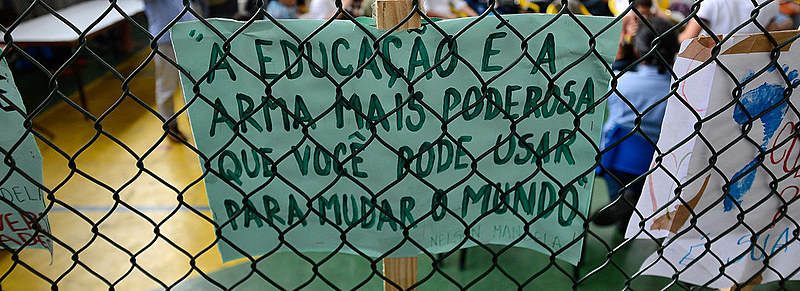 "A EDUCAÇÃO E A
ARMA MAIS PODEROSA
QUE VOCÊ PODE USAR
PARA MUDAR O MUNDO"
NELSON MANDELA